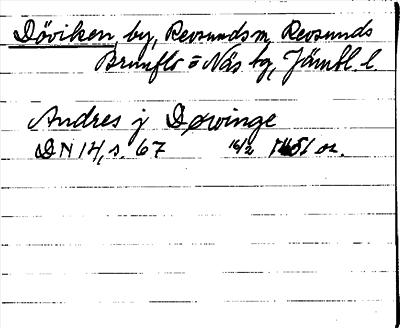 Döviken, by, Revsunds sn, Revsunds
Brunflo = Näs tg, Jämtl. l.
Andres j Døwinge
DN 14, s. 67 16/2 1451 or.